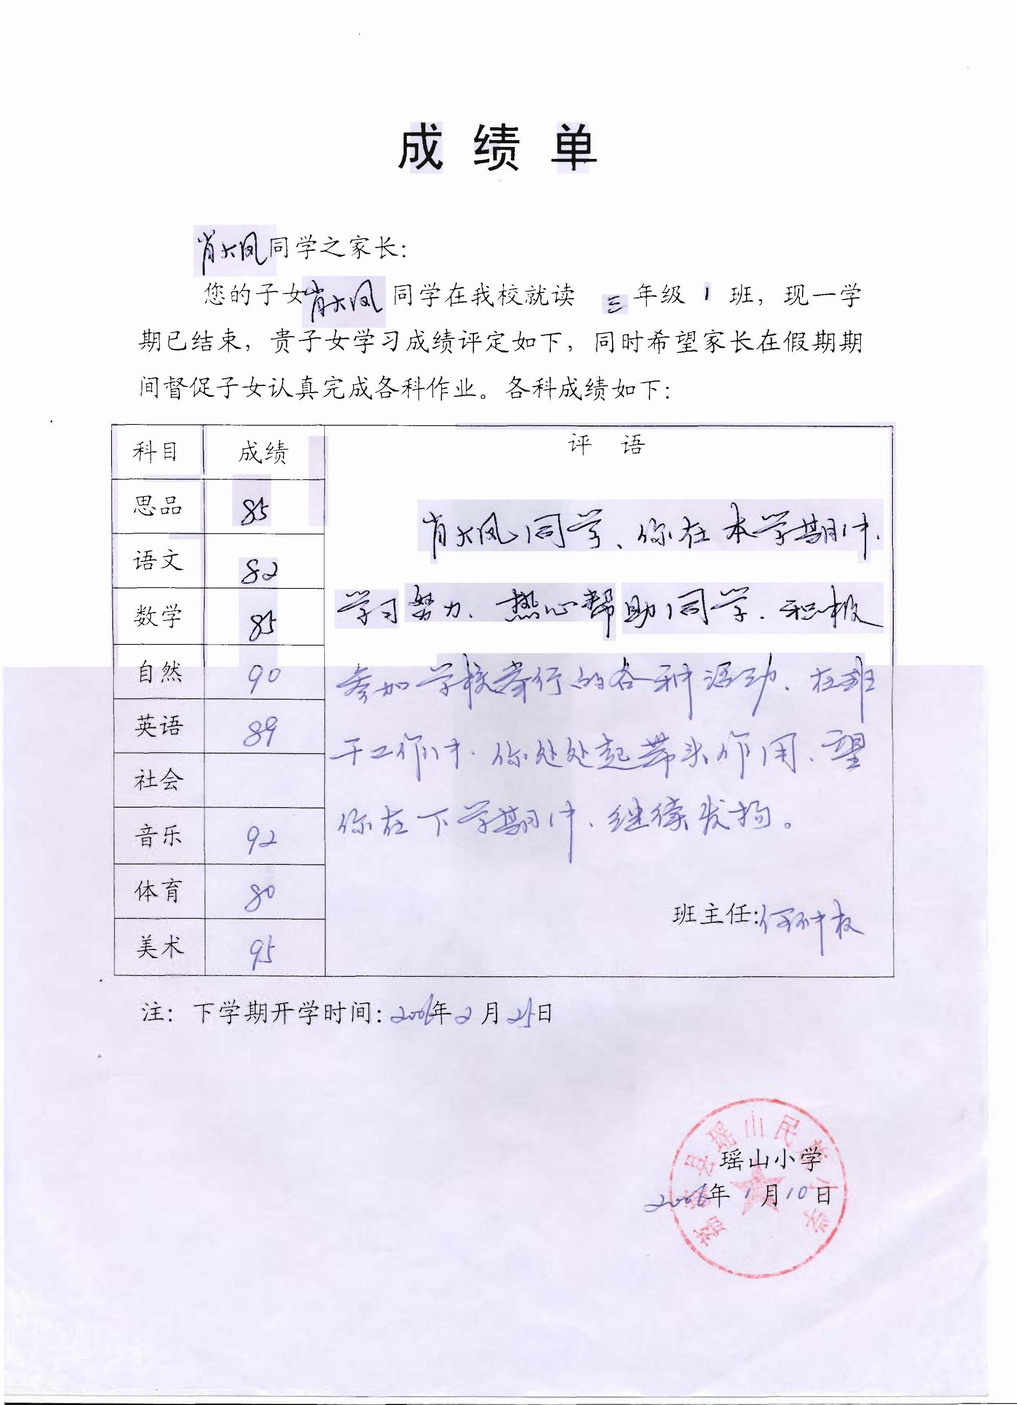 成绩单
肖大凤同学之家长:
您的子女肖大凤同学在我校就读 三年级 1 班，现一学
期已结束，贵子女学习成绩评定如下，同时希望家长在假期期
间督促子女认真完成各科作业。各科成绩如下:
科目 成绩 评 语
思品 85
语文 82
数学 85
自然 90
英语 89
社会
音乐 92
体育 80
美术 95
肖大凤同学、你在本学期中、
学习努力、热心帮助同学、积极
参加学校举行的各种活动、在班
干工作中、你处处起带头作用、望
你在下学期中、继续发扬。
班主任:
注: 下学期开学时间: 2006年2月25日
瑶山民族小学
瑶山小学
2006年1月10日